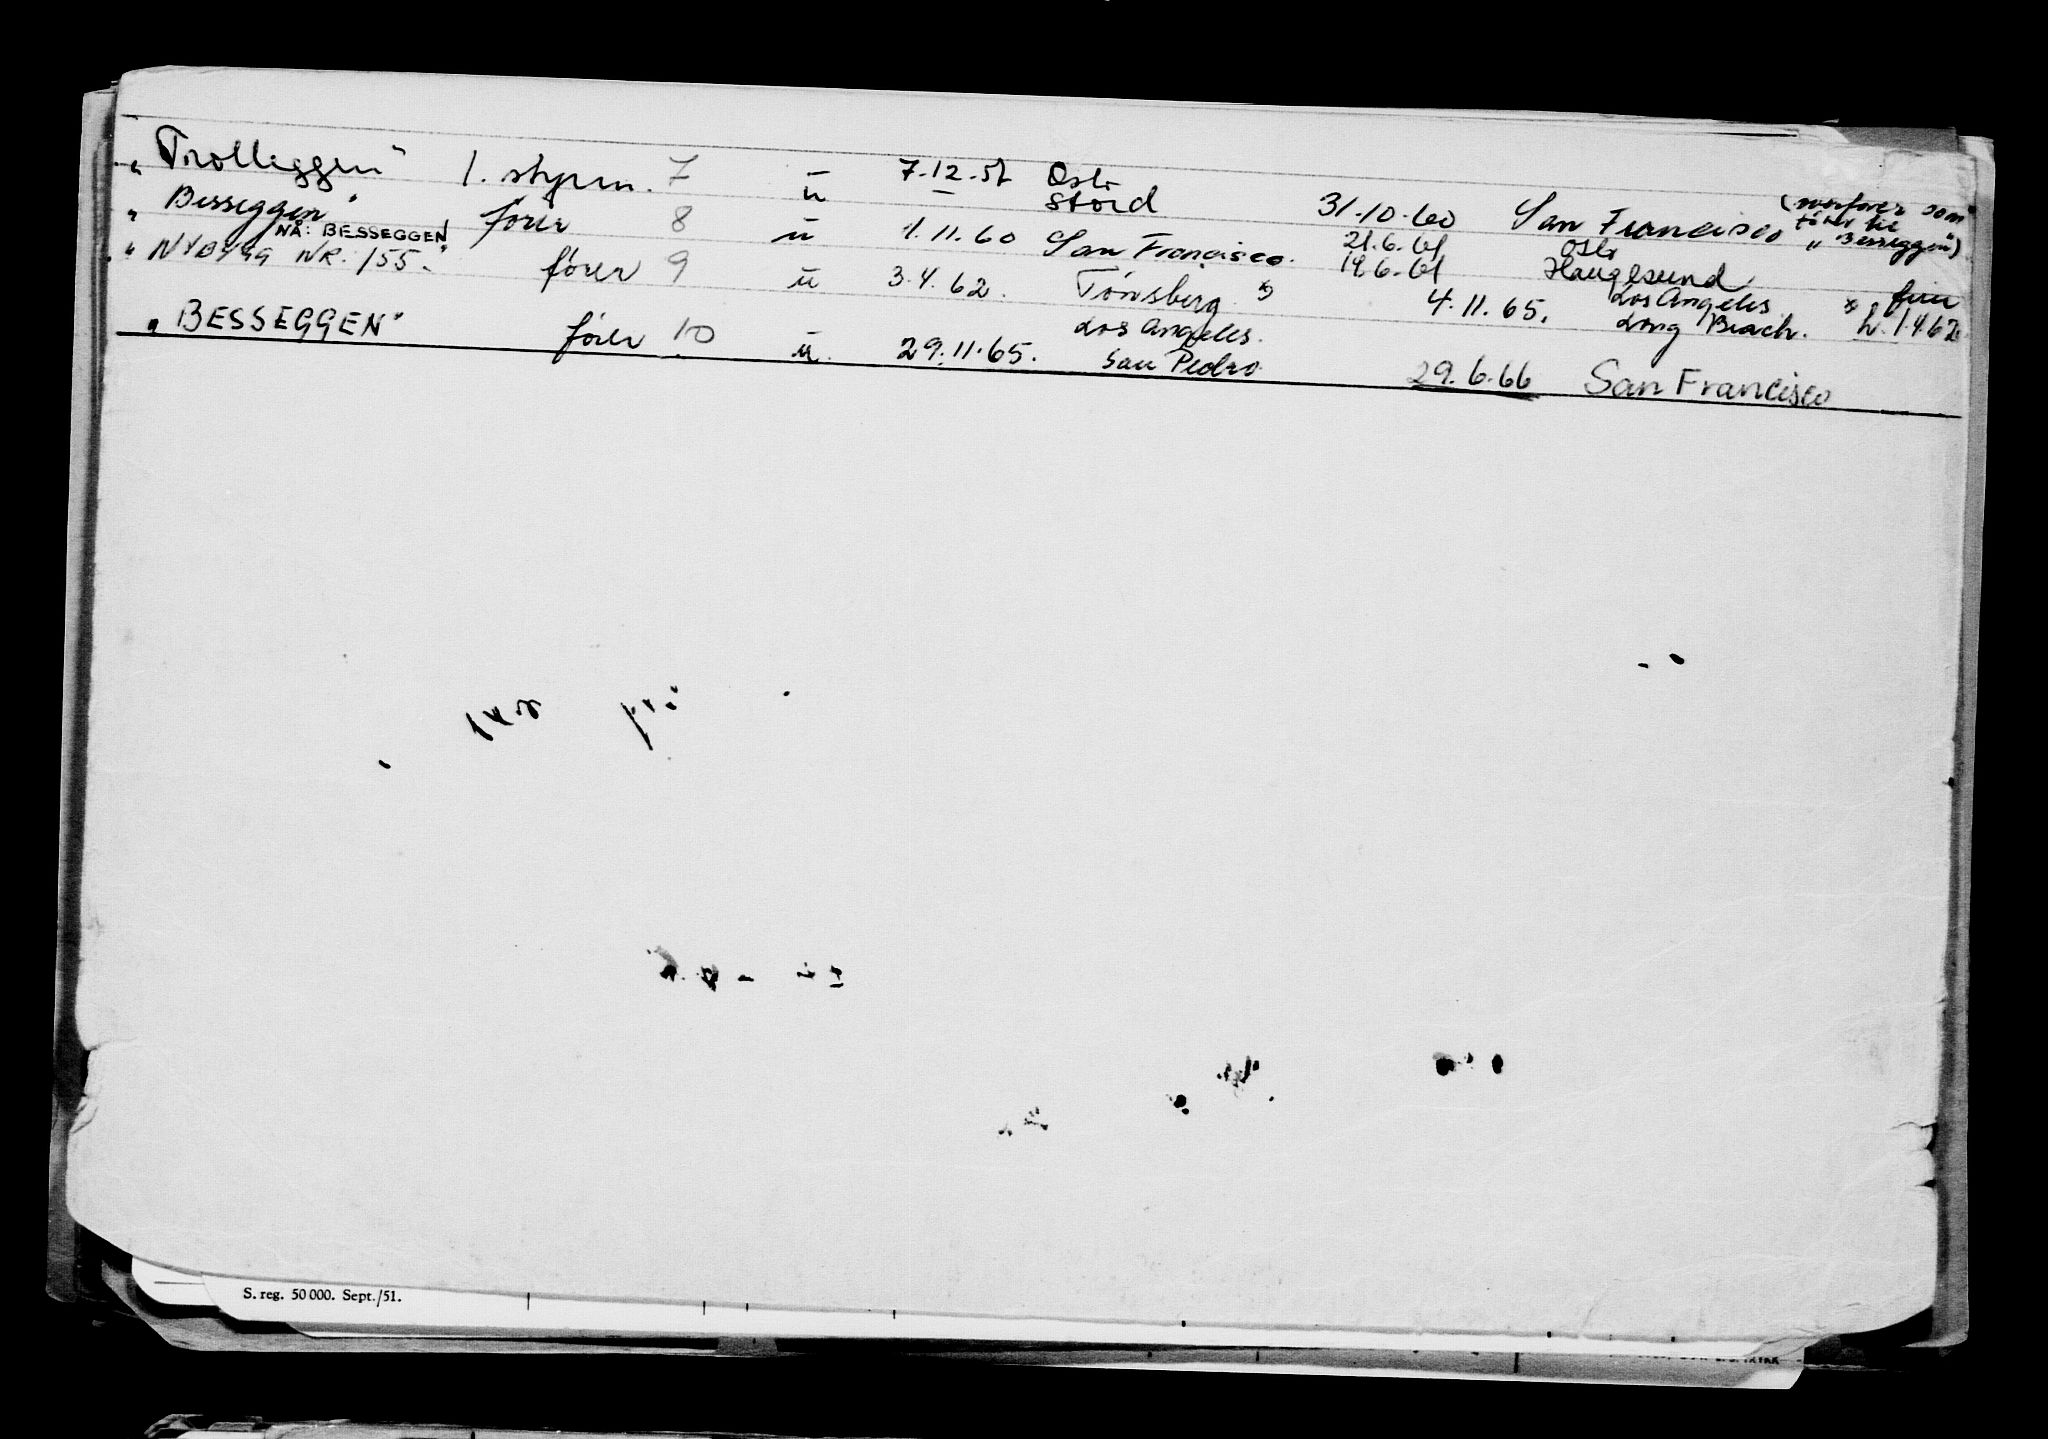 "Trolleggen" 1. styrm. 7 u 7.12.57 Oslo Stord 31.10.60 San Francisco
som fører til "Besseggen")
"Besseggen" fører 8 u 1.11.60 San Francisco. 21.6.61 19.6.61 Oslo Haugesund
NÅ: BESSEGGEN
"NYBYGG NR. 155." fører 9 u 3.4.62. Tønsberg *) 4.11.65. Los Angeles Long Beach. *) 1.4.62
"BESSEGGEN" fører 10 u. 29.11.65. Los Angeles. San Pedro 29.6.66 San Francisco
S. reg. 50 000. Sept./51.